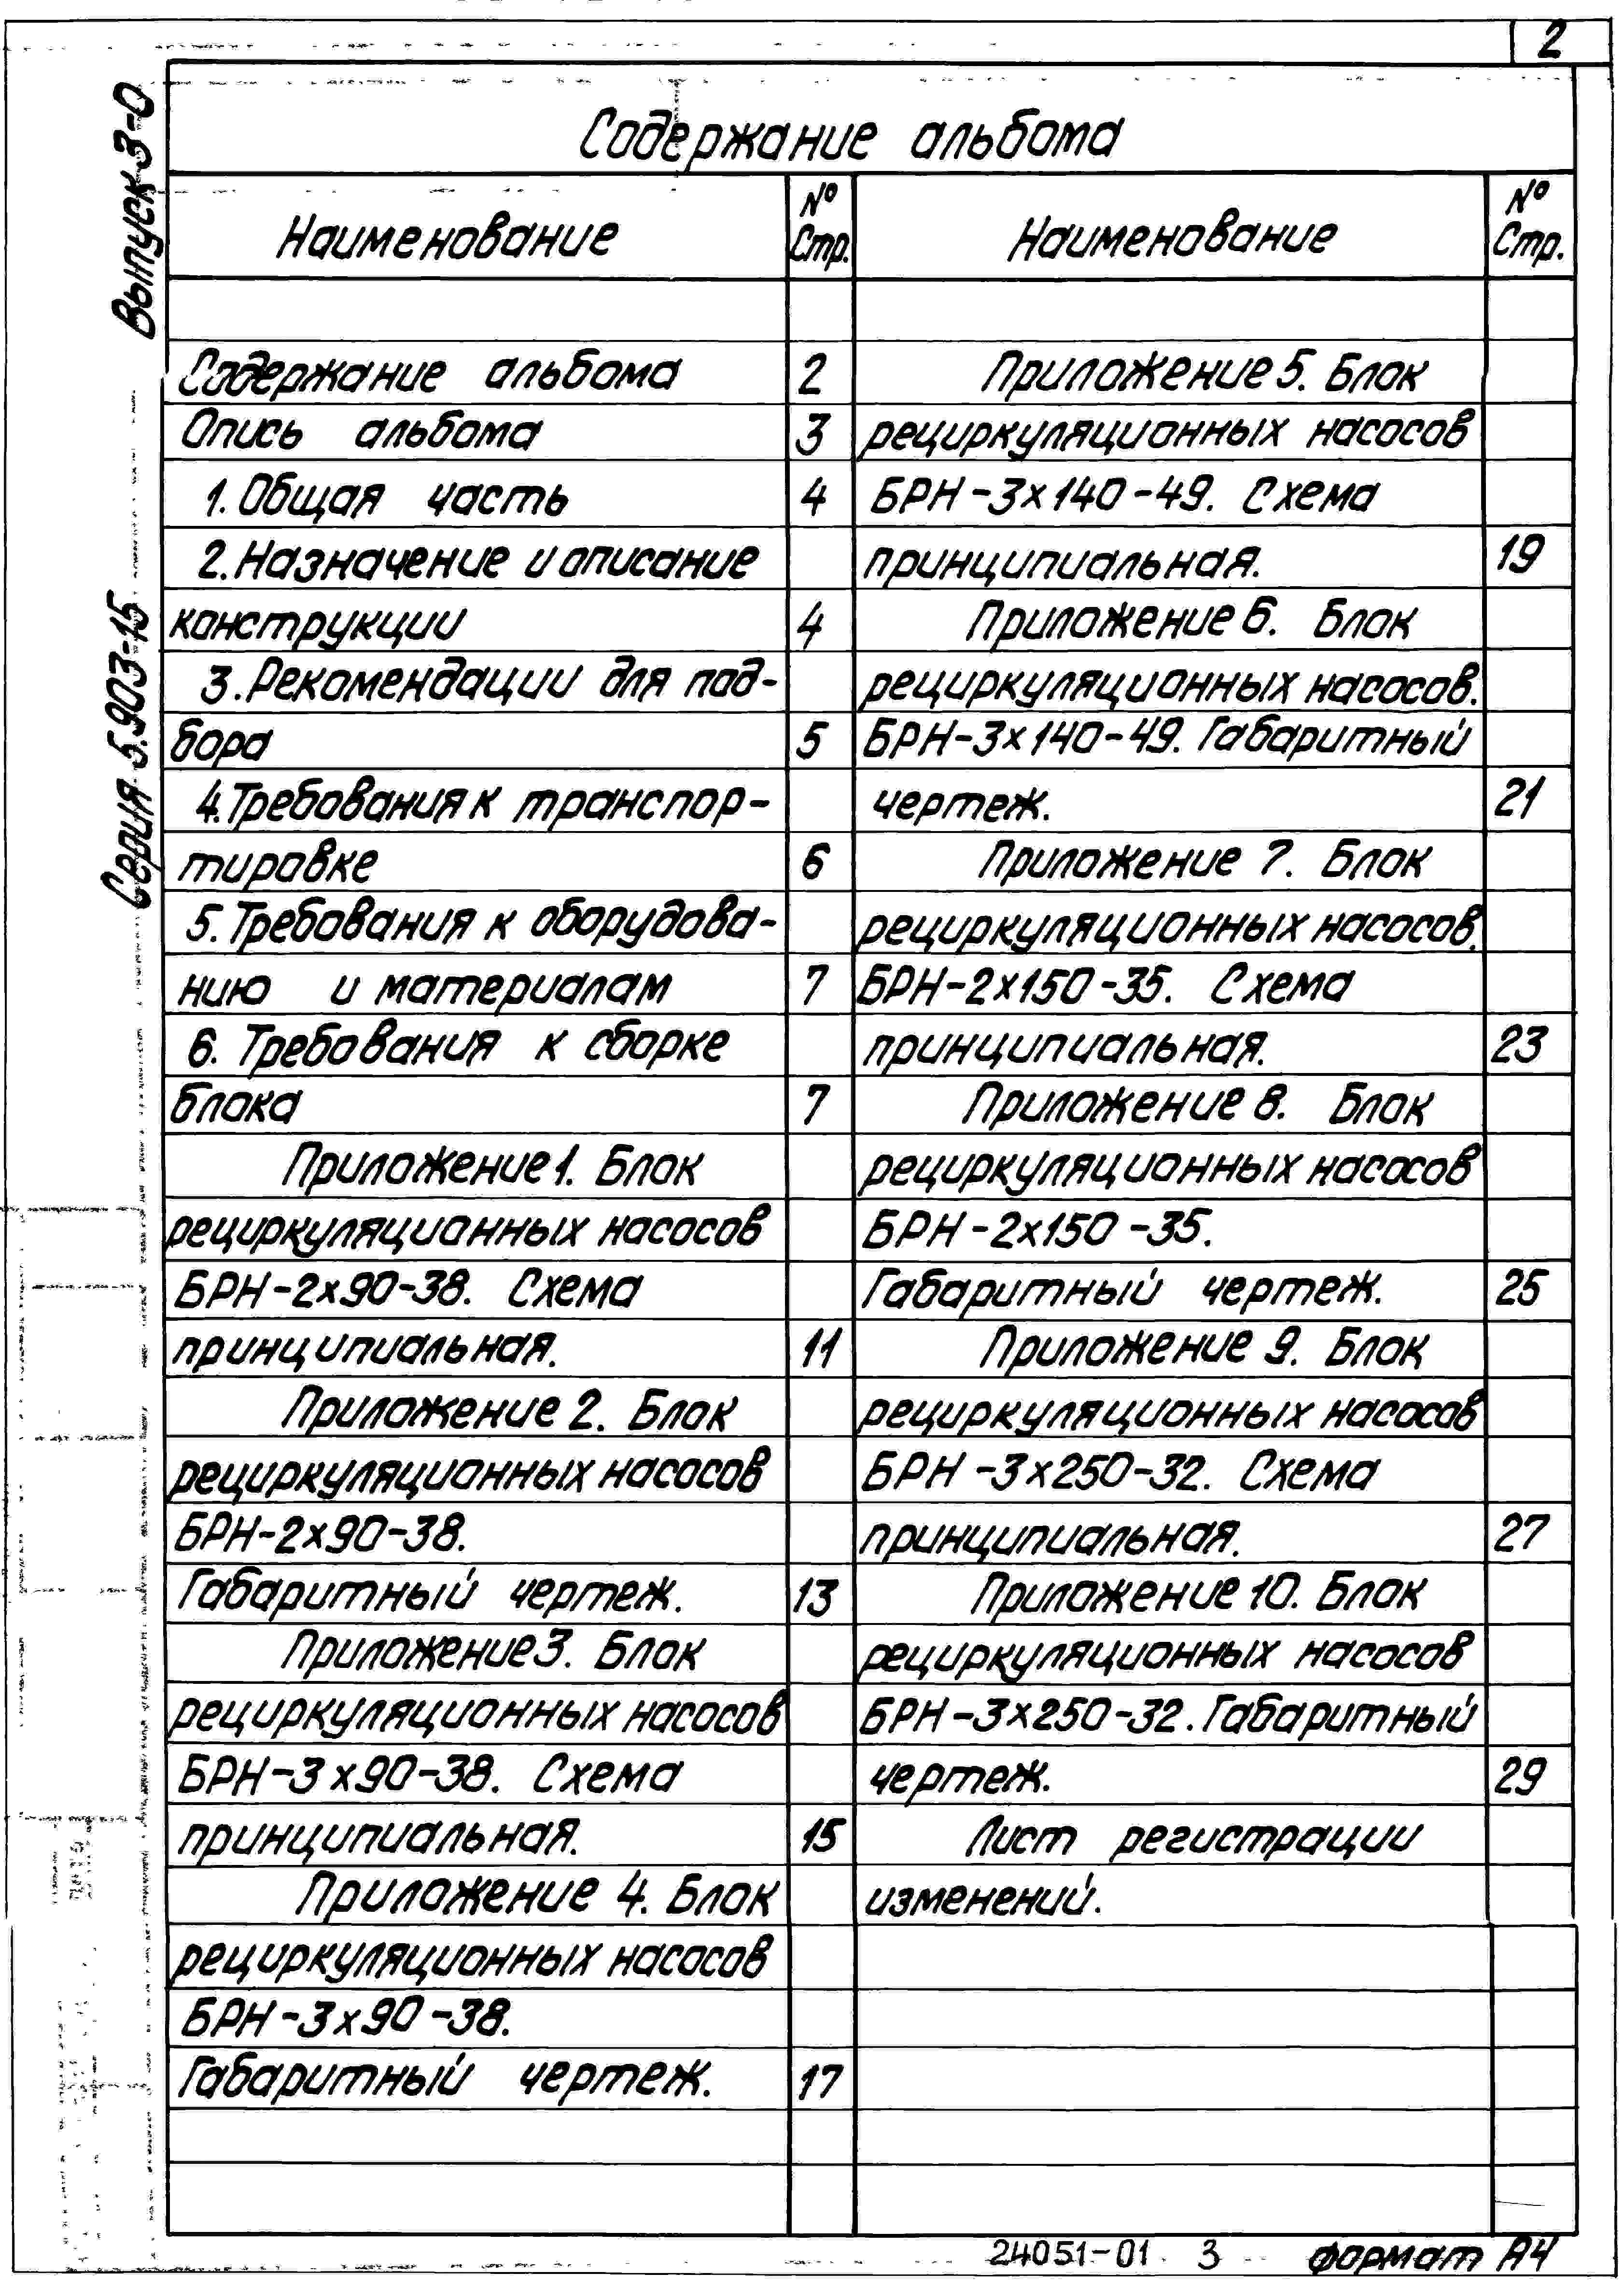 2
Выпуск 3-0
Серия 5.903-15
Содержание альбома
Наименование
№ Стр.
Содержание альбома 2
Опись альбома 3
1. Общая часть 4
2. Назначение и описание
конструкции 4
3. Рекомендации для под-
бора 5
4. Требования к транспор-
тировке 6
5. Требования к оборудова-
нию и материалам 7
6. Требования к сборке
блока 7
Приложение 1. Блок
рециркуляционных насосов
БРН-2х90-38. Схема
принципиальная. 11
Приложение 2. Блок
рециркуляционных насосов
БРН-2х90-38.
Габаритный чертеж. 13
Приложение 3. Блок
рециркуляционных насосов
БРН-3х90-38. Схема
принципиальная. 15
Приложение 4. Блок
рециркуляционных насосов
БРН-3х90-38.
Габаритный чертеж. 17
Наименование
№ Стр.
Приложение 5. Блок
рециркуляционных насосов
БРН-3х140-49. Схема
принципиальная. 19
Приложение 6. Блок
рециркуляционных насосов.
БРН-3х140-49. Габаритный
чертеж. 21
Приложение 7. Блок
рециркуляционных насосов.
БРН-2х150-35. Схема
принципиальная. 23
Приложение 8. Блок
рециркуляционных насосов
БРН-2х150-35.
Габаритный чертеж. 25
Приложение 9. Блок
рециркуляционных насосов
БРН-3х250-32. Схема
принципиальная. 27
Приложение 10. Блок
рециркуляционных насосов
БРН-3х250-32. Габаритный
чертеж. 29
Лист регистрации
изменений.
24051-01 3 формат А4